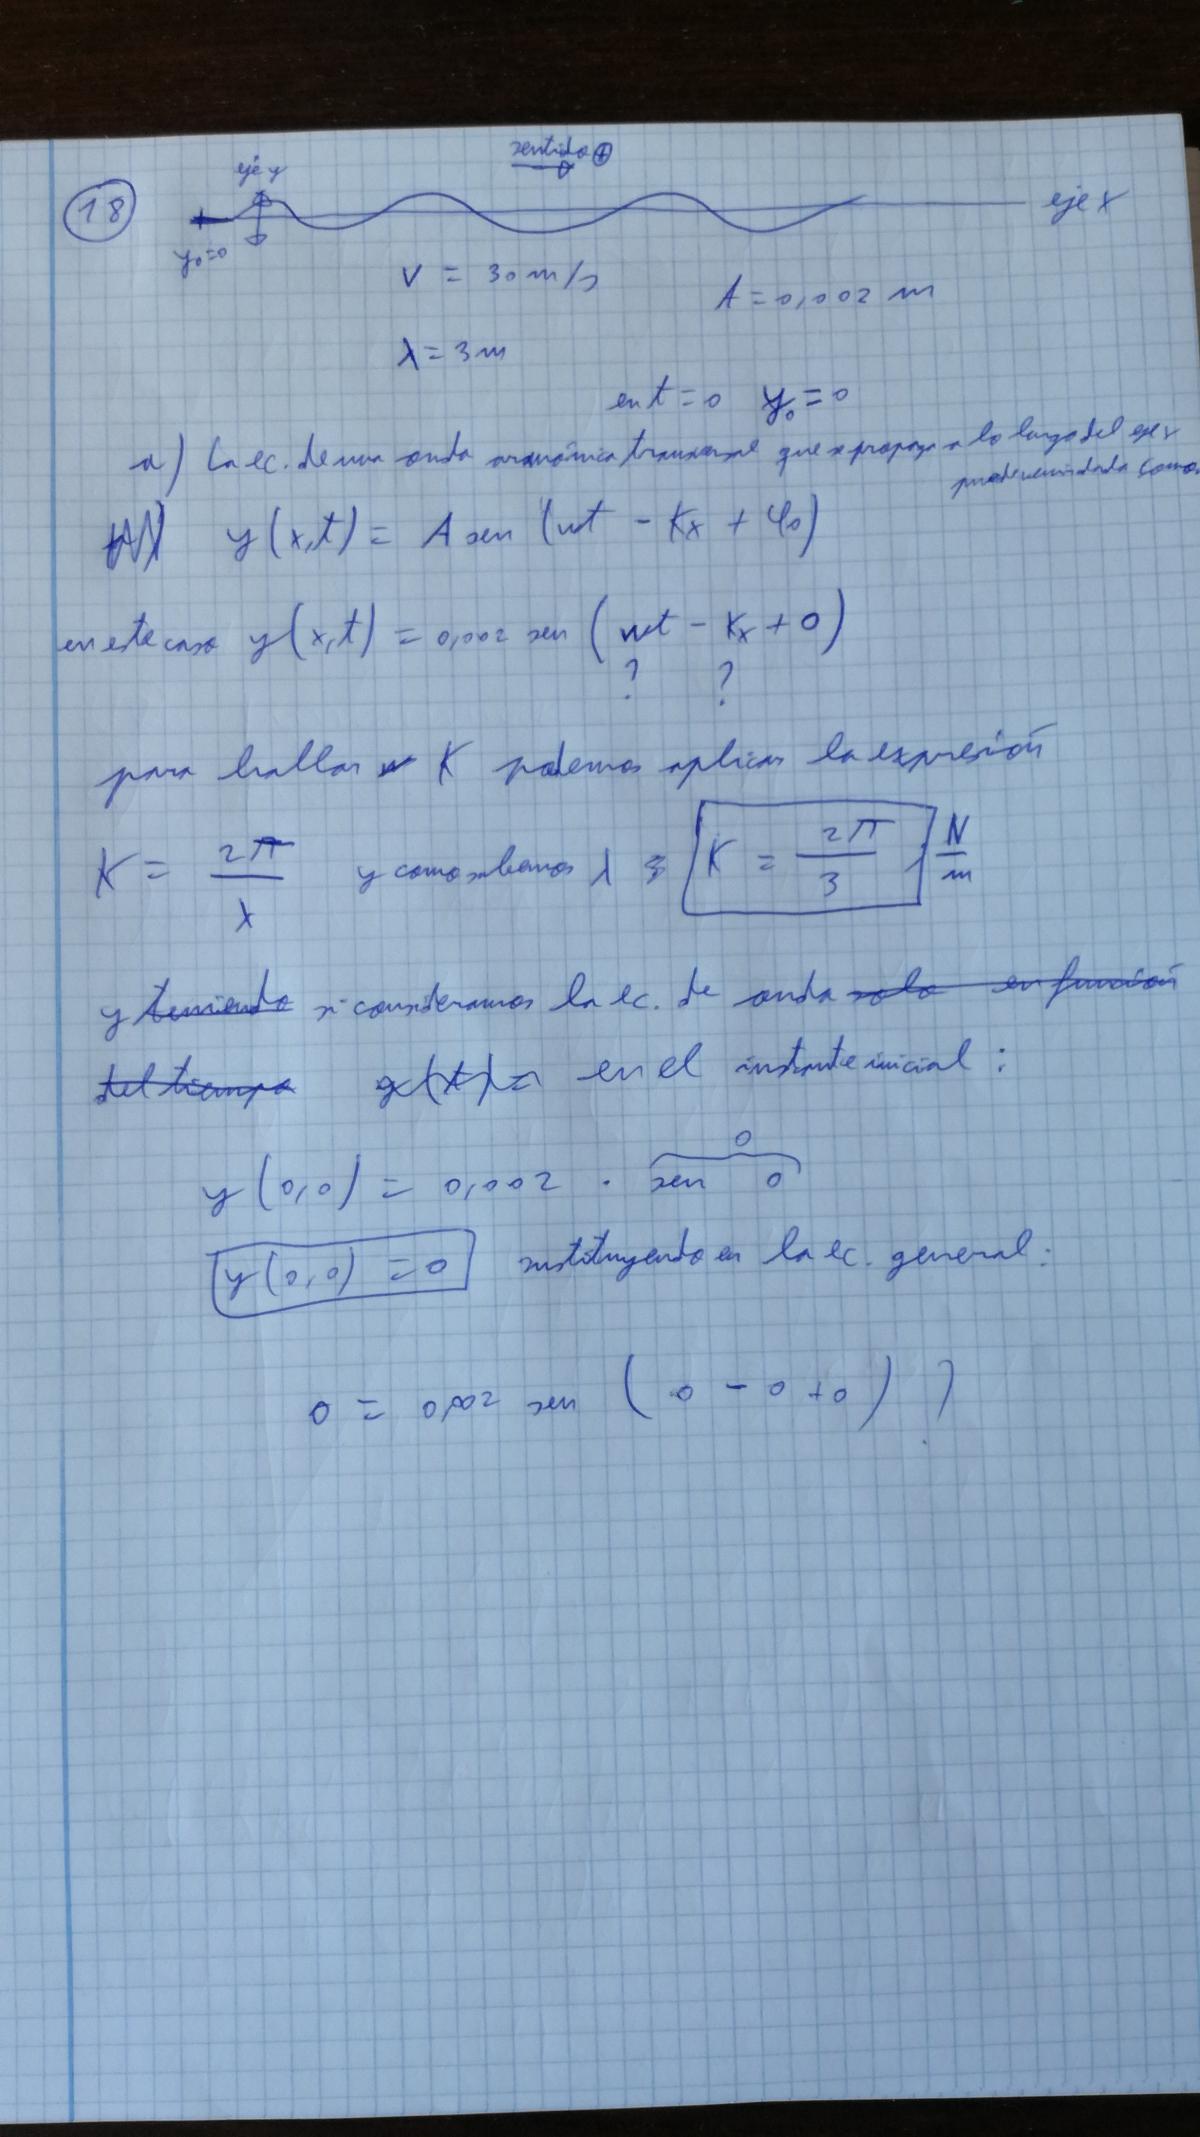 sentido ⊕
18
eje y
eje x
y₀=0
V = 30 m/s
A = 0,002 m
λ = 3 m
en t = 0 y₀ = 0
a) La ec. de una onda armónica transversal que se propaga a lo largo del eje x
puede venir dada como:
y(x,t) = A sen (wt - Kx + φ₀)
en este caso y(x,t) = 0,002 sen (wt - Kx + 0)
? ?
para hallar K podemos aplicar la expresión
K = 2π/λ y como sabemos λ ⇒ K = 2π/3 N/m
y teniendo si consideramos la ec. de onda solo en función
del tiempo y(t)= en el instante inicial :
0
y(0,0) = 0,002 · sen 0
y(0,0) = 0 sustituyendo en la ec. general:
0 = 0,002 sen (0 - 0 + 0) ?